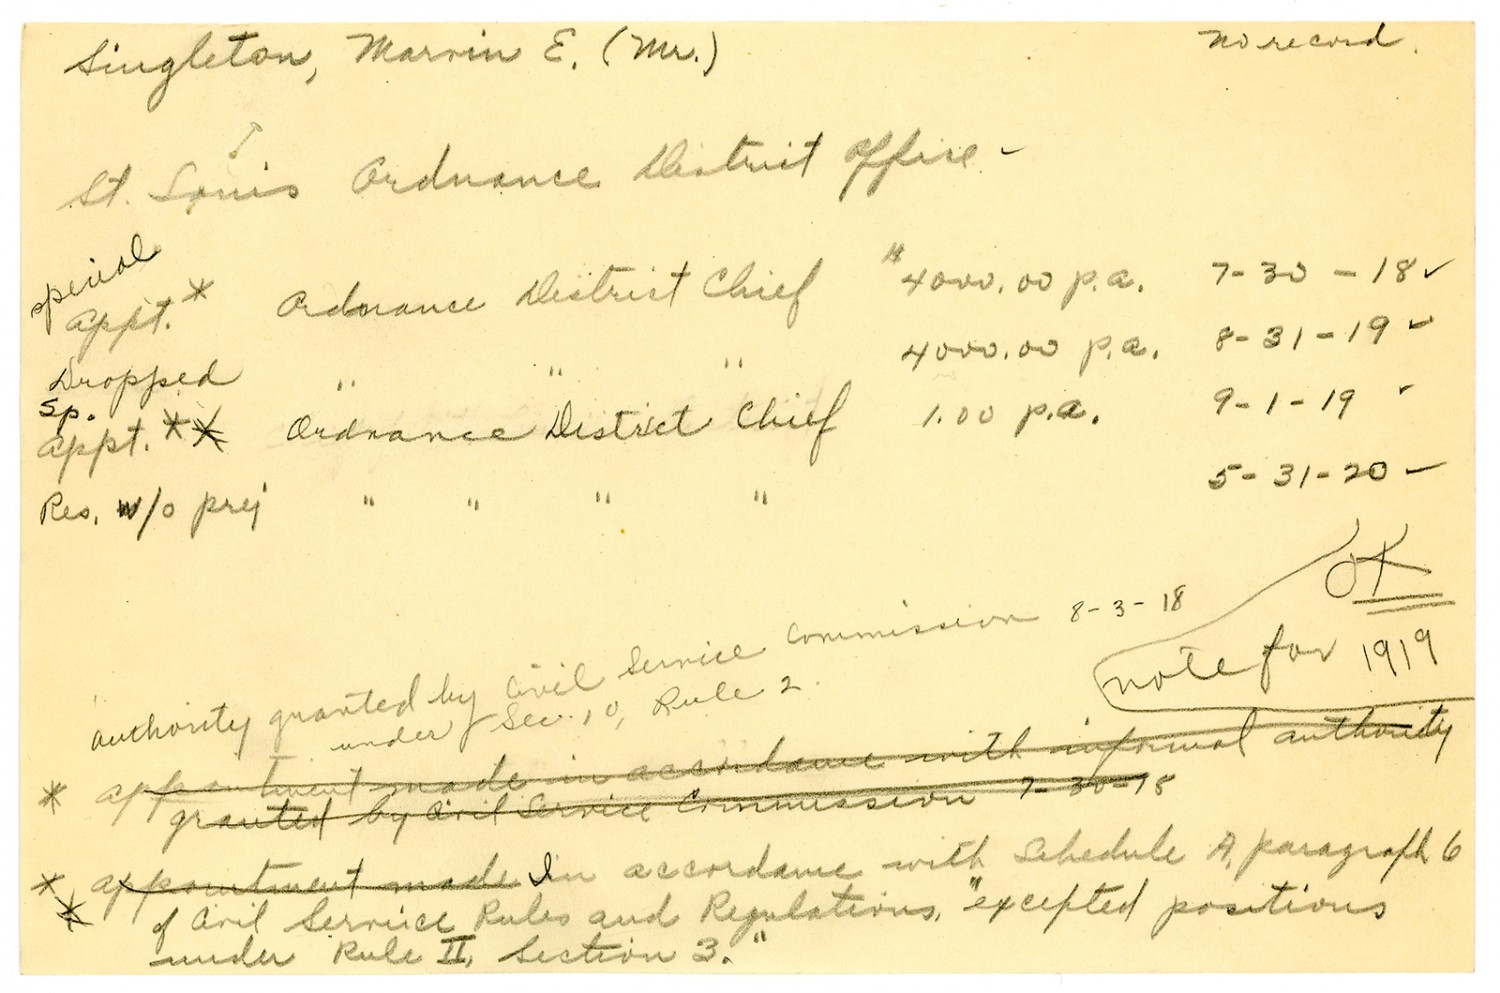 Singleton, Marvin E. (Mr.)
No record.
St. Louis Ordnance District Office -
Special
Appt. * Ordnance District Chief $4000.00 p.a. 7-30-18 ✓
Dropped " " " 4000.00 p.a. 8-31-19 ✓
Sp.
Appt. ** Ordnance District Chief 1.00 p.a. 9-1-19 ✓
Res. w/o prej " " " " 5-31-20 ✓
OK
note for 1919
authority granted by Civil Service Commission 8-3-18
under Sec. 10, Rule 2.
* appointment made in accordance with informal authority
granted by Civil Service Commission 7-30-18
** appointment made In accordance with Schedule A, paragraph 6
of Civil Service Rules and Regulations, "excepted positions
under Rule II, Section 3."